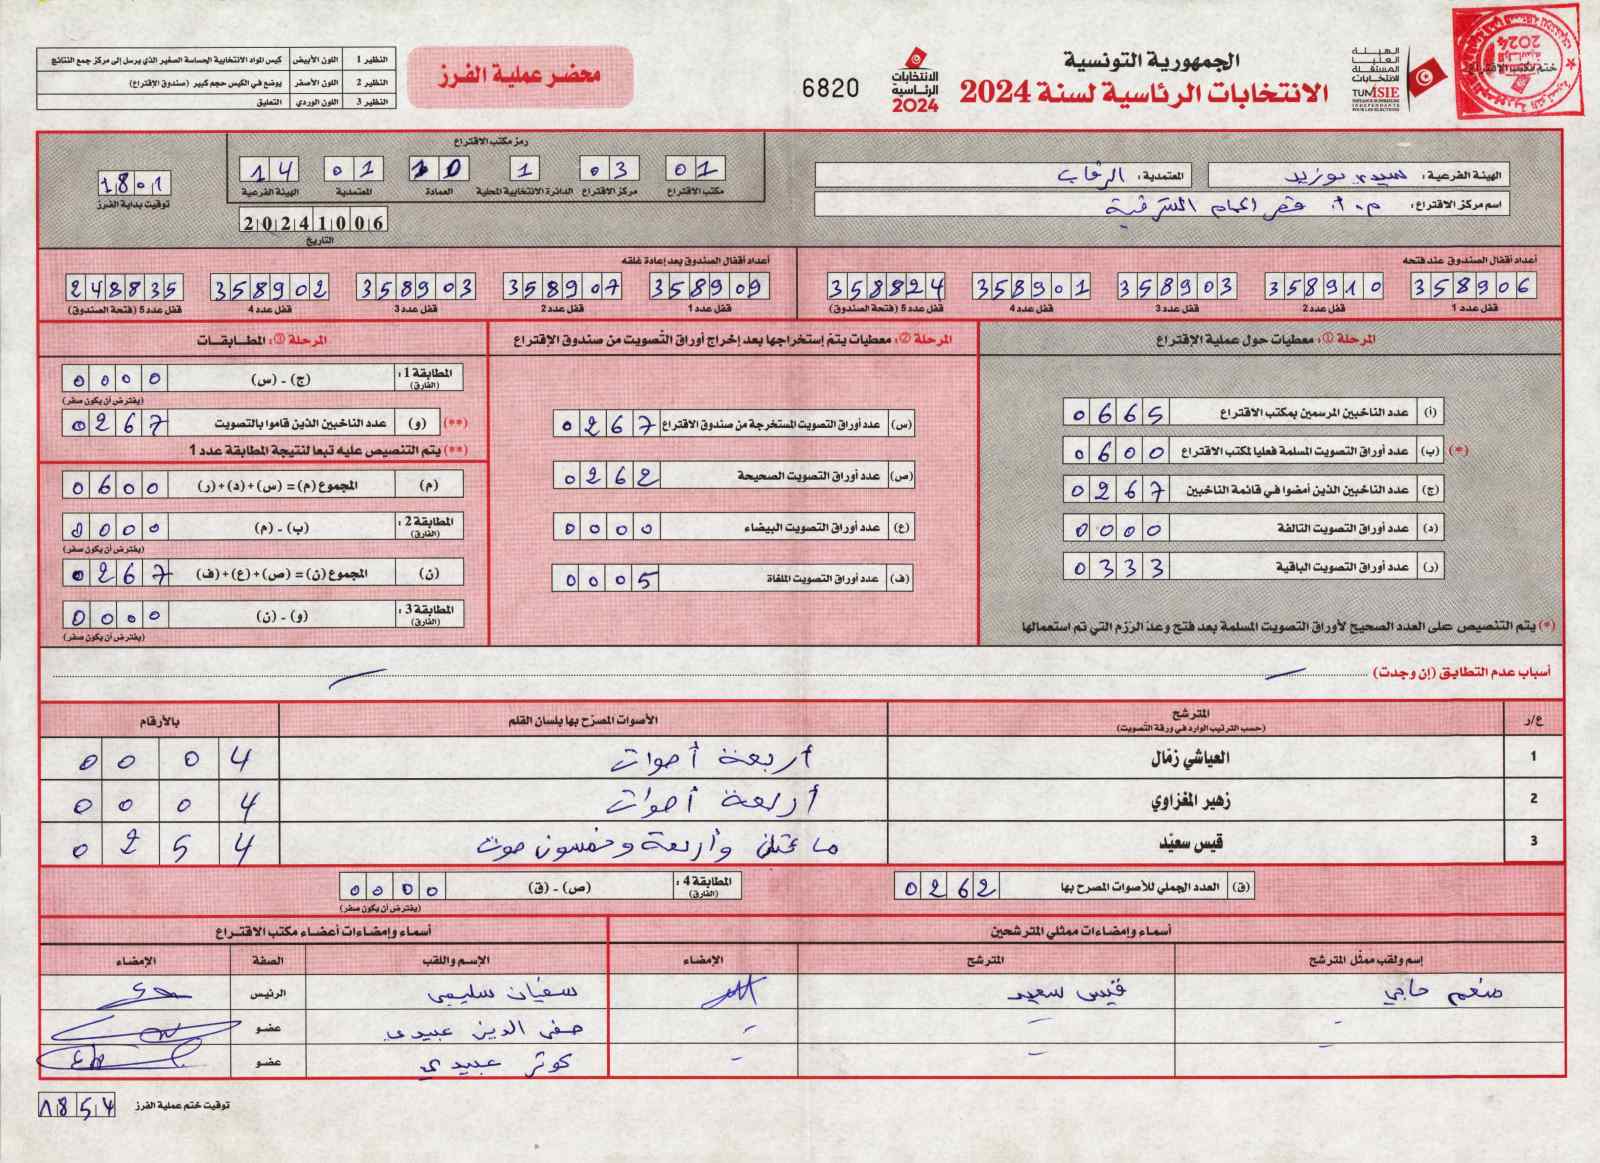 ختم مكتب الاقتراع
الهيئة العليا المستقلة للانتخابات
TUNISIE
الجمهورية التونسية
الانتخابات الرئاسية لسنة 2024
الانتخابات الرئاسية 2024
6820
محضر عملية الفرز
النظير 1 اللون الأبيض كيس المواد الانتخابية الحساسة الصغير الذي يرسل إلى مركز جمع النتائج
النظير 2 اللون الأصفر يوضع في الكيس حجم كبير (صندوق الاقتراع)
النظير 3 اللون الوردي التعليق
الهيئة الفرعية : سيدي بوزيد
المعتمدية : الرقاب
اسم مركز الاقتراع : م.أ. قصر الحمام الشرقية
رمز مكتب الاقتراع
01 03 1 10 01 14
مكتب الاقتراع مركز الاقتراع الدائرة الانتخابية المحلية العمادة المعتمدية الهيئة الفرعية
20241006
التاريخ
1801
توقيت بداية الفرز
أعداد أقفال الصندوق عند فتحه
358906 358910 358903 358901 358824
قفل عدد 1 قفل عدد 2 قفل عدد 3 قفل عدد 4 قفل عدد 5 (فتحة الصندوق)
أعداد أقفال الصندوق بعد إعادة غلقه
358909 358907 358903 358902 248835
قفل عدد 1 قفل عدد 2 قفل عدد 3 قفل عدد 4 قفل عدد 5 (فتحة الصندوق)
المرحلة ①: معطيات حول عملية الإقتراع
(أ) عدد الناخبين المرسمين بمكتب الاقتراع 0665
(*) (ب) عدد أوراق التصويت المسلمة فعليا لمكتب الاقتراع 0600
(ج) عدد الناخبين الذين أمضوا في قائمة الناخبين 0267
(د) عدد أوراق التصويت التالفة 0000
(ر) عدد أوراق التصويت الباقية 0333
(*) يتم التنصيص على العدد الصحيح لأوراق التصويت المسلمة بعد فتح وعد الرزم التي تم استعمالها
المرحلة ②: معطيات يتم إستخراجها بعد إخراج أوراق التصويت من صندوق الإقتراع
(س) عدد أوراق التصويت المستخرجة من صندوق الاقتراع 0267
(ص) عدد أوراق التصويت الصحيحة 0262
(ع) عدد أوراق التصويت البيضاء 0000
(ف) عدد أوراق التصويت الملغاة 0005
المرحلة ③: المطابقات
المطابقة 1 : (الفارق) (ج) - (س) 0000
(يفترض أن يكون صفر)
(**) (و) عدد الناخبين الذين قاموا بالتصويت 0267
(**) يتم التنصيص عليه تبعا لنتيجة المطابقة عدد 1
(م) المجموع (م) = (س)+(د)+(ر) 0600
المطابقة 2 : (الفارق) (ب) - (م) 0000
(يفترض أن يكون صفر)
(ن) المجموع (ن) = (ص)+(ع)+(ف) 0267
المطابقة 3 : (الفارق) (و) - (ن) 0000
(يفترض أن يكون صفر)
أسباب عدم التطابق (إن وجدت)
ع/ر المترشح الأصوات المصرّح بها بلسان القلم بالأرقام
(حسب الترتيب الوارد في ورقة التصويت)
1 العياشي زمّال أربعة أصوات 0004
2 زهير المغزاوي أربعة أصوات 0004
3 قيس سعيّد مائتان وأربعة وخمسون صوت 0254
(ق) العدد الجملي للأصوات المصرح بها 0262
المطابقة 4 : (الفارق) (ص) - (ق) 0000
(يفترض أن يكون صفر)
أسماء وإمضاءات ممثلي المترشحين
إسم ولقب ممثل المترشح المترشح الإمضاء
منعم حاجي قيس سعيد
أسماء وإمضاءات أعضاء مكتب الاقتراع
الإسم واللقب الصفة الإمضاء
سفيان سليمي الرئيس
صفي الدين عبيدي عضو
كوثر عبيدي عضو
توقيت ختم عملية الفرز 1854